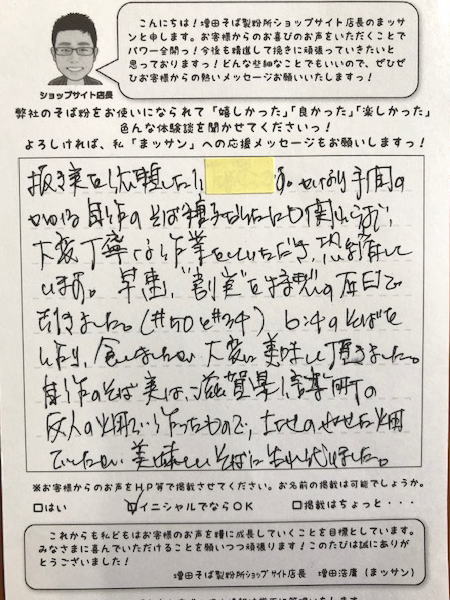 こんにちは!増田そば製粉所ショップサイト店長のまッサ
ンと申します。お客様からのお喜びのお声をいただくことで
パワー全開っ!今後も精進して挽きに頑張っていきたいと
思っておりますっ!どんな些細なことでもいいので、ぜひぜ
ひお客様からの熱いメッセージお願いいたしますっ!
ショップサイト店長
弊社のそば粉をお使いになられて「嬉しかった」「良かった」「楽しかった」
色んな体験談を聞かせてくださいっ!
よろしければ、私「まッサン」への応援メッセージもお願いしますっ!
抜き実を依頼した
す。かなり手間の
かかる自作のそば種子でしたにも関わらず、
大変丁寧な作業をしていただき、恐縮して
います。早速、"割実"を持ち の石臼で
引きました。(#50と#34) 6:4のそばを
食しましたが 大変に美味しく頂きました。
自作のそば実は、滋賀県 町の
友人の畑で作ったもので、土地のやせた畑
でしたが、美味しいそばに
※お客様からのお声をHP等で掲載させてください。お名前の掲載は可能でしょうか。
□はい ☑イニシャルでならOK □掲載はちょっと・・・
これからも私どもはお客様のお声を糧に成長していくことを目標としています。
みなさまに喜んでいただけることを願いつつ頑張ります!このたびは誠にありが
とうございました!
増田そば製粉所ショップサイト店長 増田浩庸(まッサン)